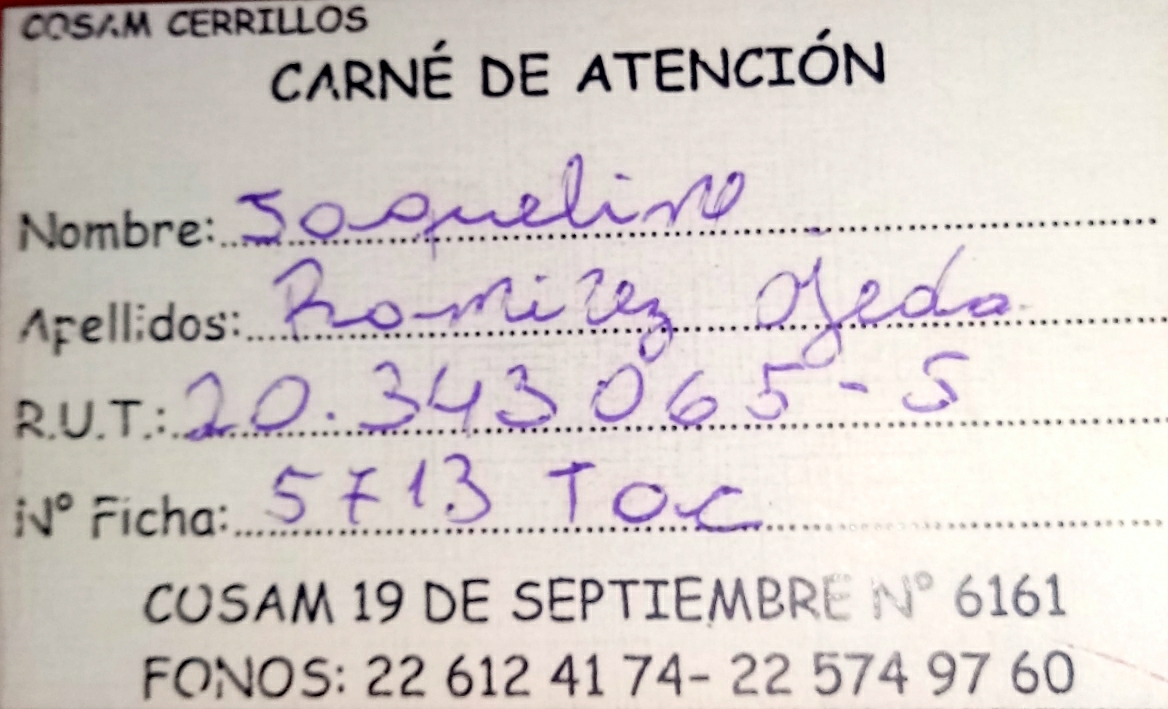 COSAM CERRILLOS
CARNÉ DE ATENCIÓN
Nombre: Joaquelino
Apellidos: Ramirez Ojeda
R.U.T.: 20.343065-5
Nº Ficha: 5713 Toc
COSAM 19 DE SEPTIEMBRE Nº 6161
FONOS: 22 612 41 74- 22 574 97 60